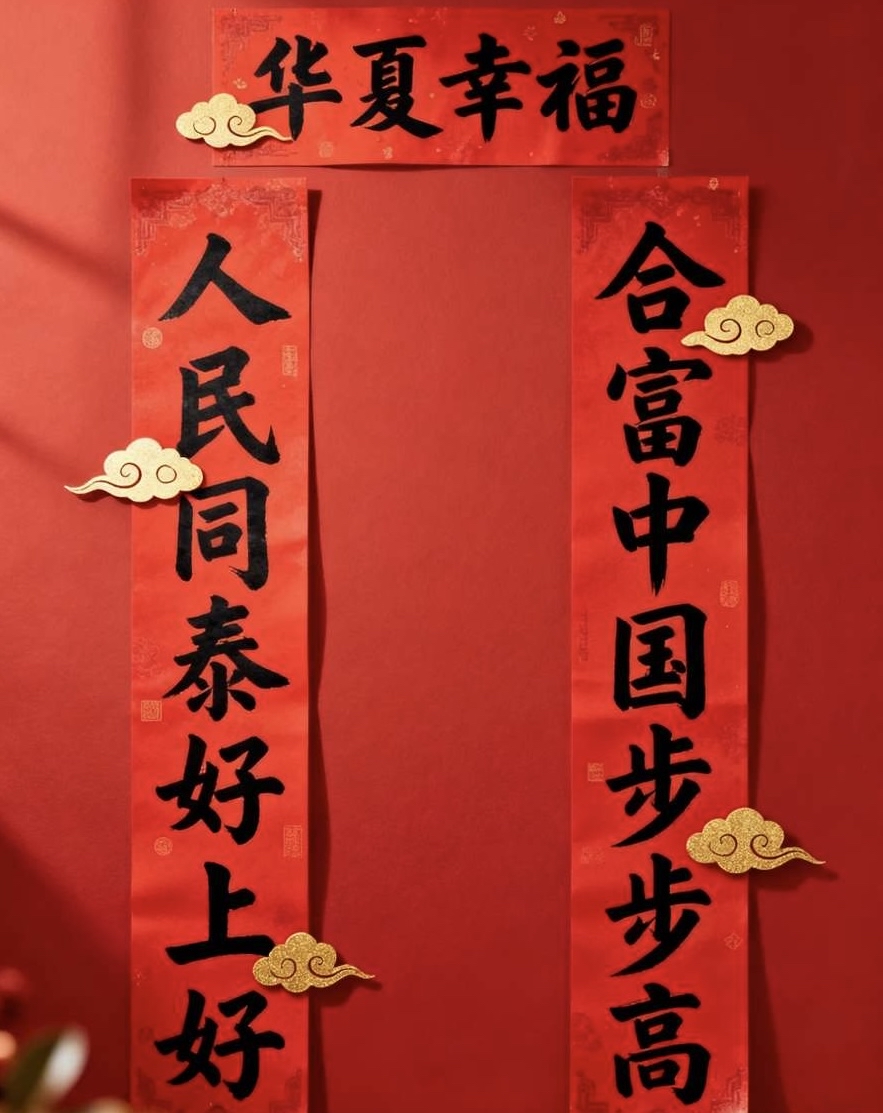 华夏幸福
合富中国步步高
人民同泰好上好